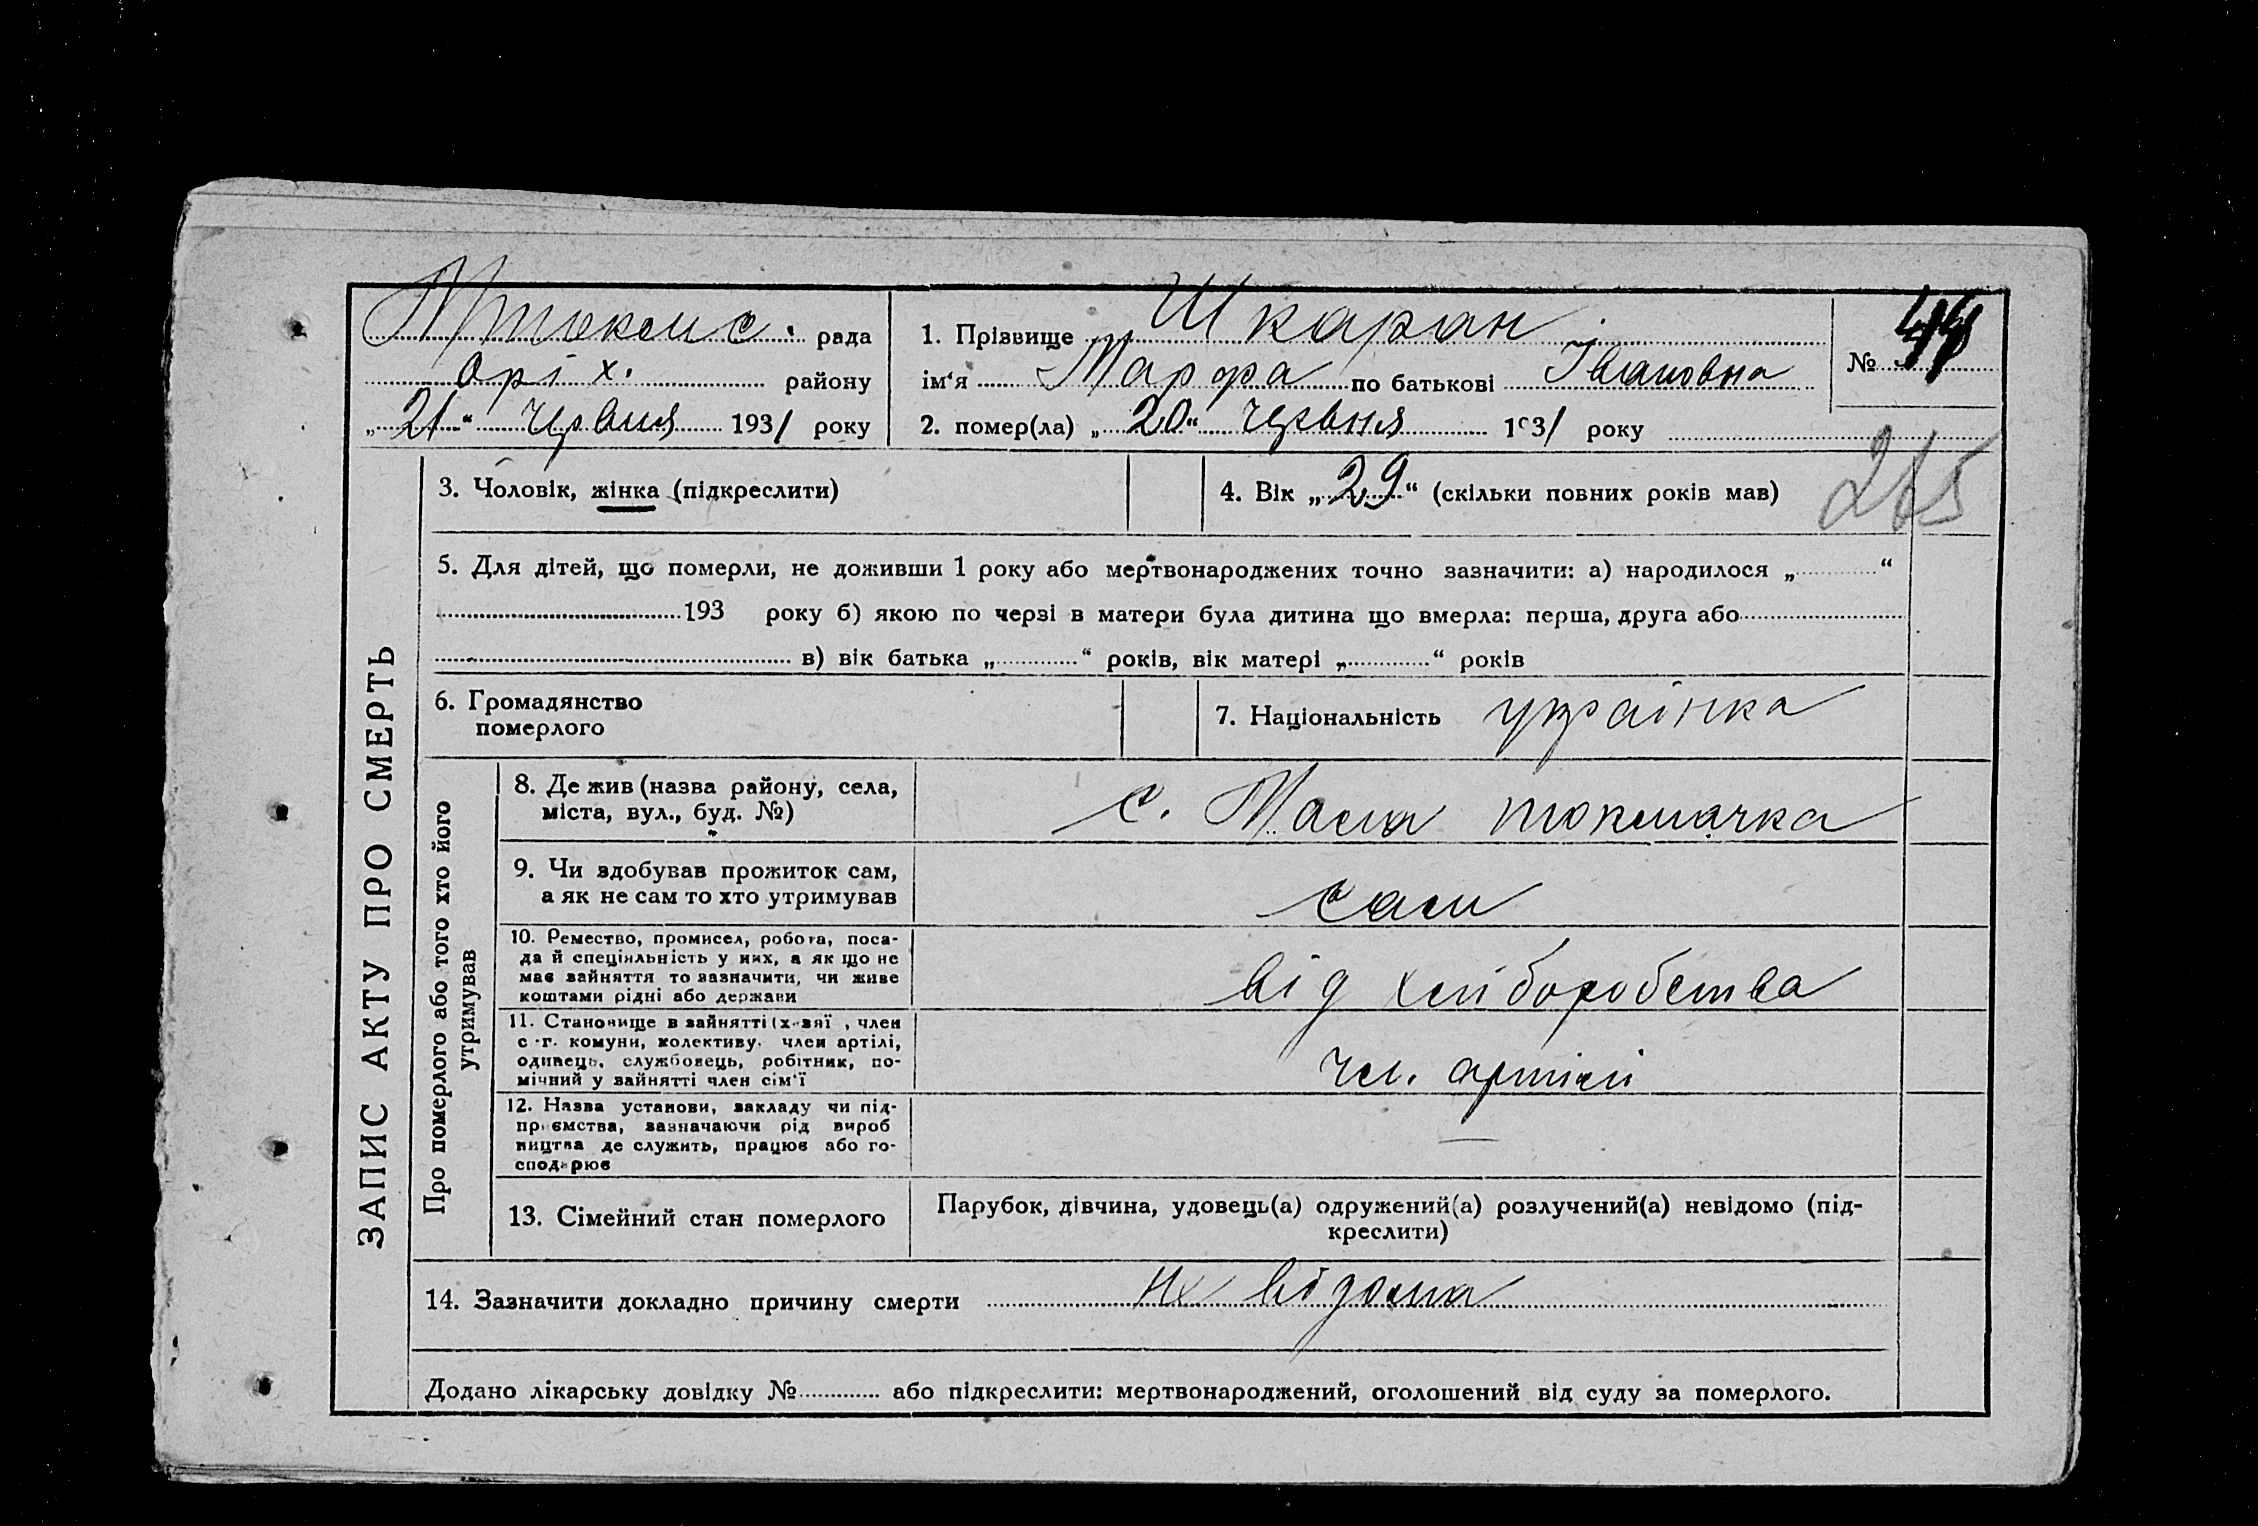 М токмс. рада
оріх. району
„21“ червня 1931 року
1. Прізвище Шкаран
ім‘я Марфа по батькові Івановна
2. помер(ла) „20“ червня 1931 року
№ 44
265
ЗАПИС АКТУ ПРО СМЕРТЬ
3. Чоловік, жінка (підкреслити)
4. Вік „29“ (скільки повних років мав)
5. Для дітей, що померли, не доживши 1 року або мертвонароджених точно зазначити: а) народилося „ “
193 року б) якою по черзі в матери була дитина що вмерла: перша, друга або
в) вік батька „ “ років, вік матері „ “ років
6. Громадянство
померлого
7. Національність українка
Про померлого або того хто його
утримував
8. Де жив (назва району, села,
міста, вул., буд. №)
с. Мала токмачка
9. Чи здобував прожиток сам,
а як не сам то хто утримував
сам
10. Ремество, промисел, робота, поса-
да й спеціяльність у них, а як що не
має зайняття то зазначити, чи живе
коштами рідні або держави
від хліборобства
11. Становище в зайнятті (х-зяї , член
с.-г. комуни, колективу, член артілі,
одинець, службовець, робітник, по-
мічний у зайнятті член сім‘ї
чл. артілі
12. Назва установи, закладу чи під-
приємства, зазначаючи рід вироб
ництва де служить, працює або го-
сподарює
—
13. Сімейний стан померлого
Парубок, дівчина, удовець(а) одружений(а) розлучений(а) невідомо (під-
креслити)
14. Зазначити докладно причину смерти не відома
Додано лікарську довідку № або підкреслити: мертвонароджений, оголошений від суду за померлого.